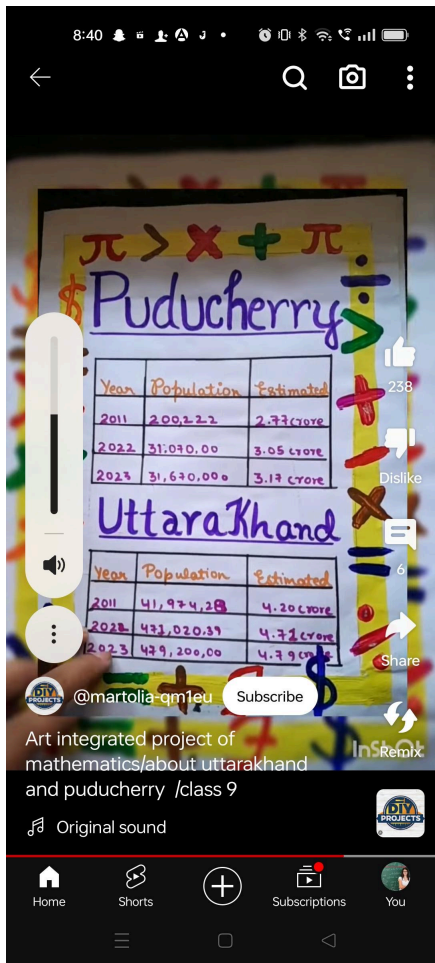 8:40
π > × + π
Puducherry
Year Population Estimated
2011 200,222 2.77 Crore
2022 31.070.00 3.05 crore
2023 31,670,000 3.17 crore
UttaraKhand
Year Population Estimated
2011 41,974,28 4.20 crore
2022 471,020.39 4.71 crore
2023 479,200,00 4.79 crore
238
Dislike
6
Share
Remix
DIY
PROJECTS
@martolia-qm1eu
Subscribe
Art integrated project of
mathematics/about uttarakhand
and puducherry /class 9
Original sound
DIY
PROJECTS
Home
Shorts
Subscriptions
You